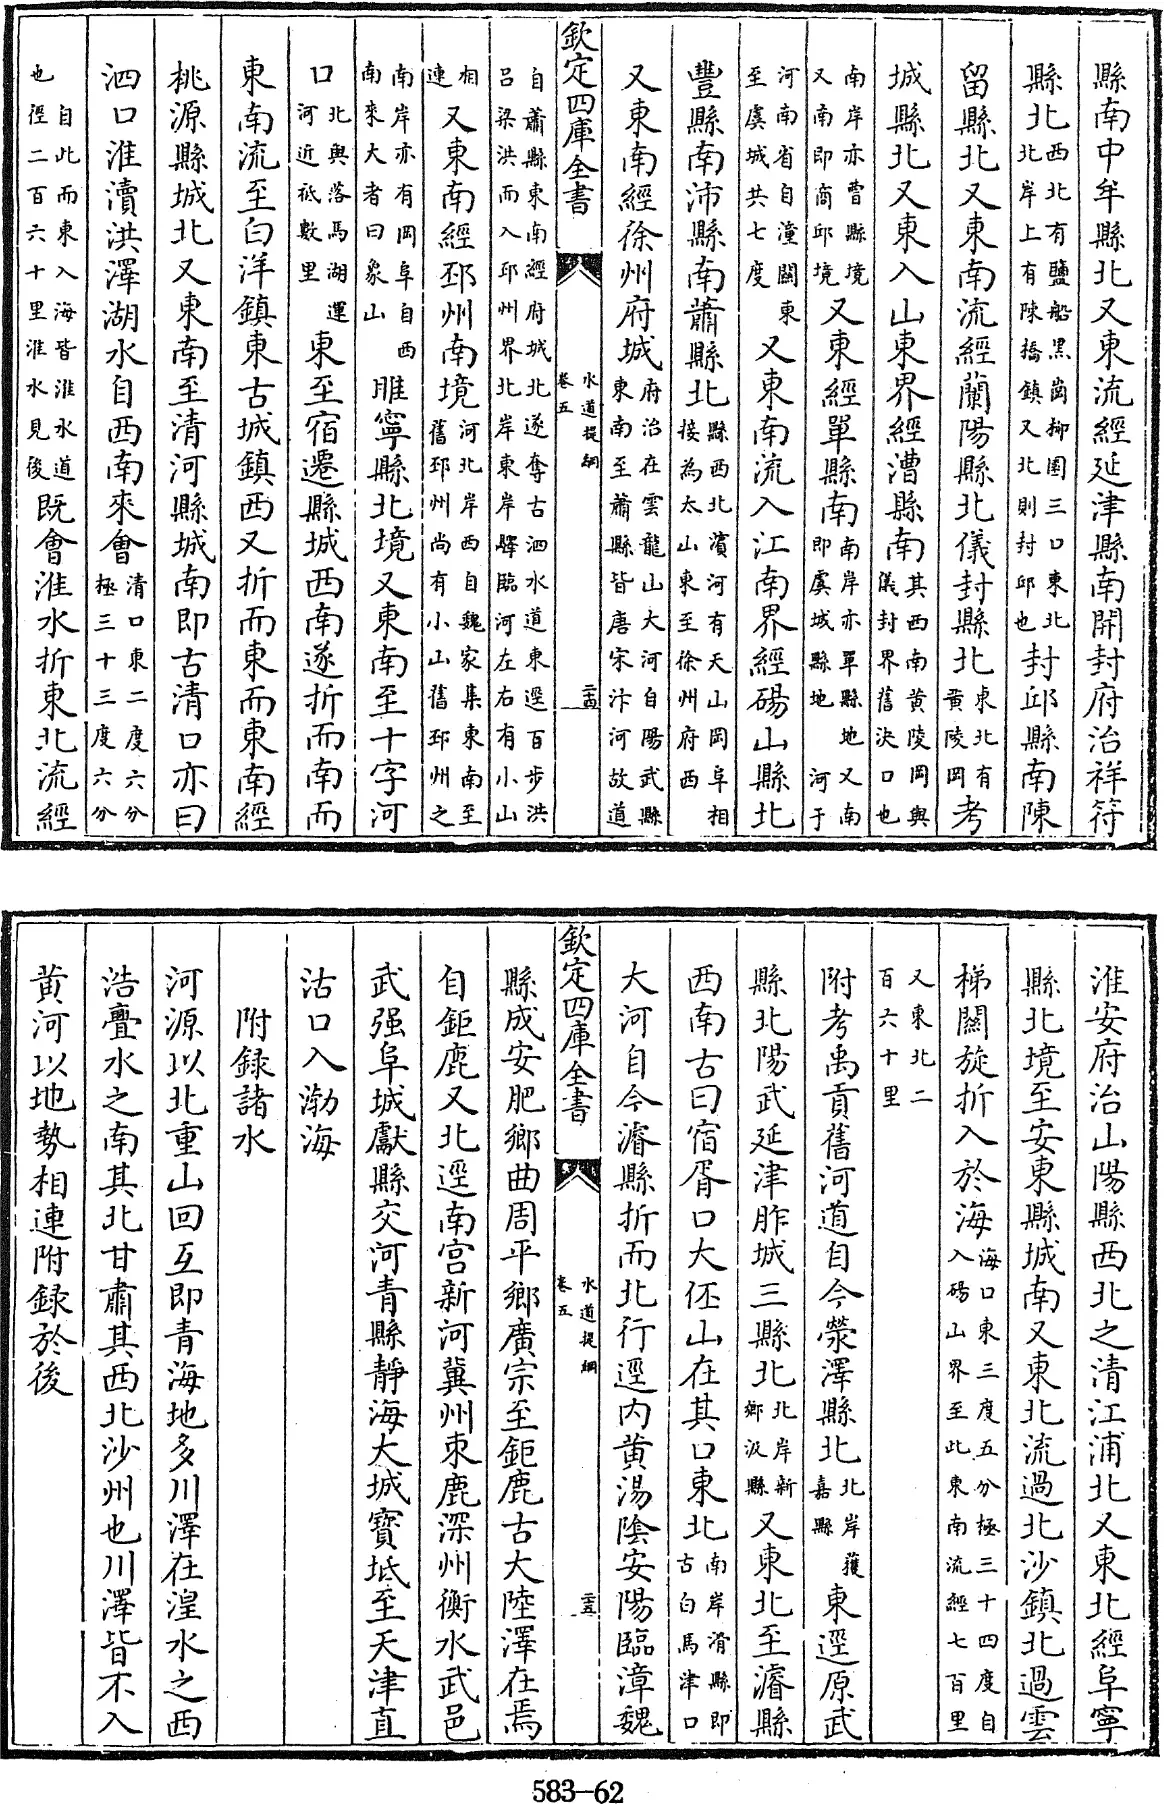 縣南中牟縣北又東流經延津縣南開封府治祥符
縣北西北有鹽船黑崗柳園三口東北北岸上有陳橋鎮又北則封邱也封邱縣南陳
留縣北又東南流經蘭陽縣北儀封縣北東北有黄陵岡考
城縣北又東入山東界經漕縣南其西南黄陵岡與儀封界舊決口也
南岸亦曹縣境又南即商邱境又東經單縣南南岸亦單縣地又南即虞城縣地河于
河南省自潼關東至虞城共七度又東南流入江南界經碭山縣北
豐縣南沛縣南蕭縣北縣西北濱河有天山岡阜相接為太山東至徐州府西
又東南經徐州府城府治在雲龍山大河自陽武縣東南至蕭縣皆唐宋汴河故道
欽定四庫全書
水道提綱
卷五
二十四
自蕭縣東南經府城北遂奪古泗水道東逕百步洪吕梁洪而入邳州界北岸東岸驛臨河左右有小山
相連又東南經邳州南境河北岸西自魏家集東南至舊邳州尚有小山舊邳州之
南岸亦有岡阜自西南來大者曰象山睢寧縣北境又東南至十字河
口北與落馬湖運河近祗數里東至宿遷縣城西南遂折而南而
東南流至白洋鎮東古城鎮西又折而東而東南經
桃源縣城北又東南至清河縣城南即古清口亦曰
泗口淮瀆洪澤湖水自西南來會清口東二度六分極三十三度六分
自此而東入海皆淮水道也徑二百六十里淮水見後既會淮水折東北流經
淮安府治山陽縣西北之清江浦北又東北經阜寧
縣北境至安東縣城南又東北流過北沙鎮北過雲
梯關旋折入於海海口東三度五分極三十四度自入碭山界至此東南流經七百里
又東北二百六十里
附考禹貢舊河道自今滎澤縣北北岸獲嘉縣東逕原武
縣北陽武延津胙城三縣北北岸新鄉汲縣又東北至濬縣
西南古曰宿胥口大伾山在其口東北南岸滑縣即古白馬津口
大河自今濬縣折而北行逕内黄湯陰安陽臨漳魏
欽定四庫全書
水道提綱
卷五
二十五
縣成安肥鄉曲周平鄉廣宗至鉅鹿古大陸澤在焉
自鉅鹿又北逕南宫新河冀州束鹿深州衡水武邑
武强阜城獻縣交河青縣靜海大城寳坻至天津直
沽口入渤海
附録諸水
河源以北重山回互即青海地多川澤在湟水之西
浩亹水之南其北甘肅其西北沙州也川澤皆不入
黄河以地勢相連附録於後
583-62